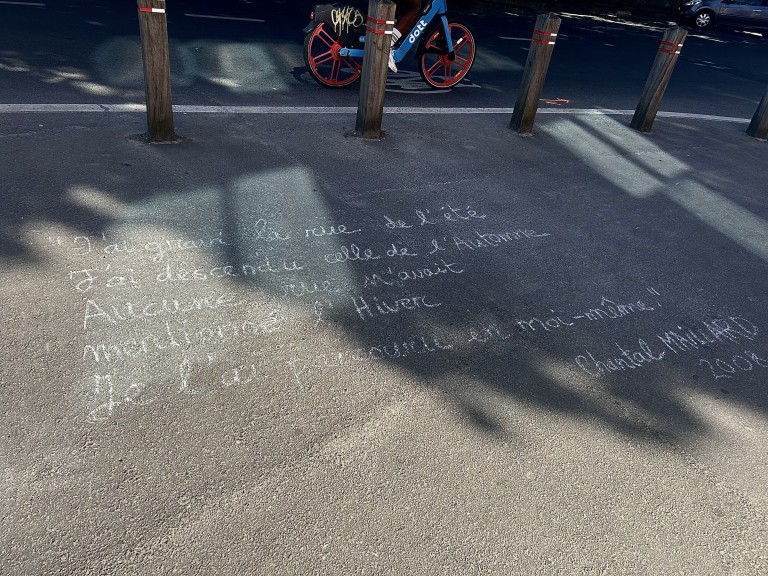 dott
"J'ai gravi la rue de l'été
J'ai descendu celle de l'Automne
Aucune rue m'avait
mentionné l'Hiver
Je l'ai parcouru en moi-même."
Chantal MAILLARD
2008